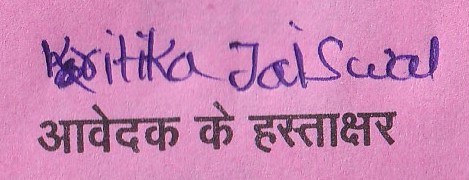 Kritika Jaiswal
आवेदक के हस्ताक्षर